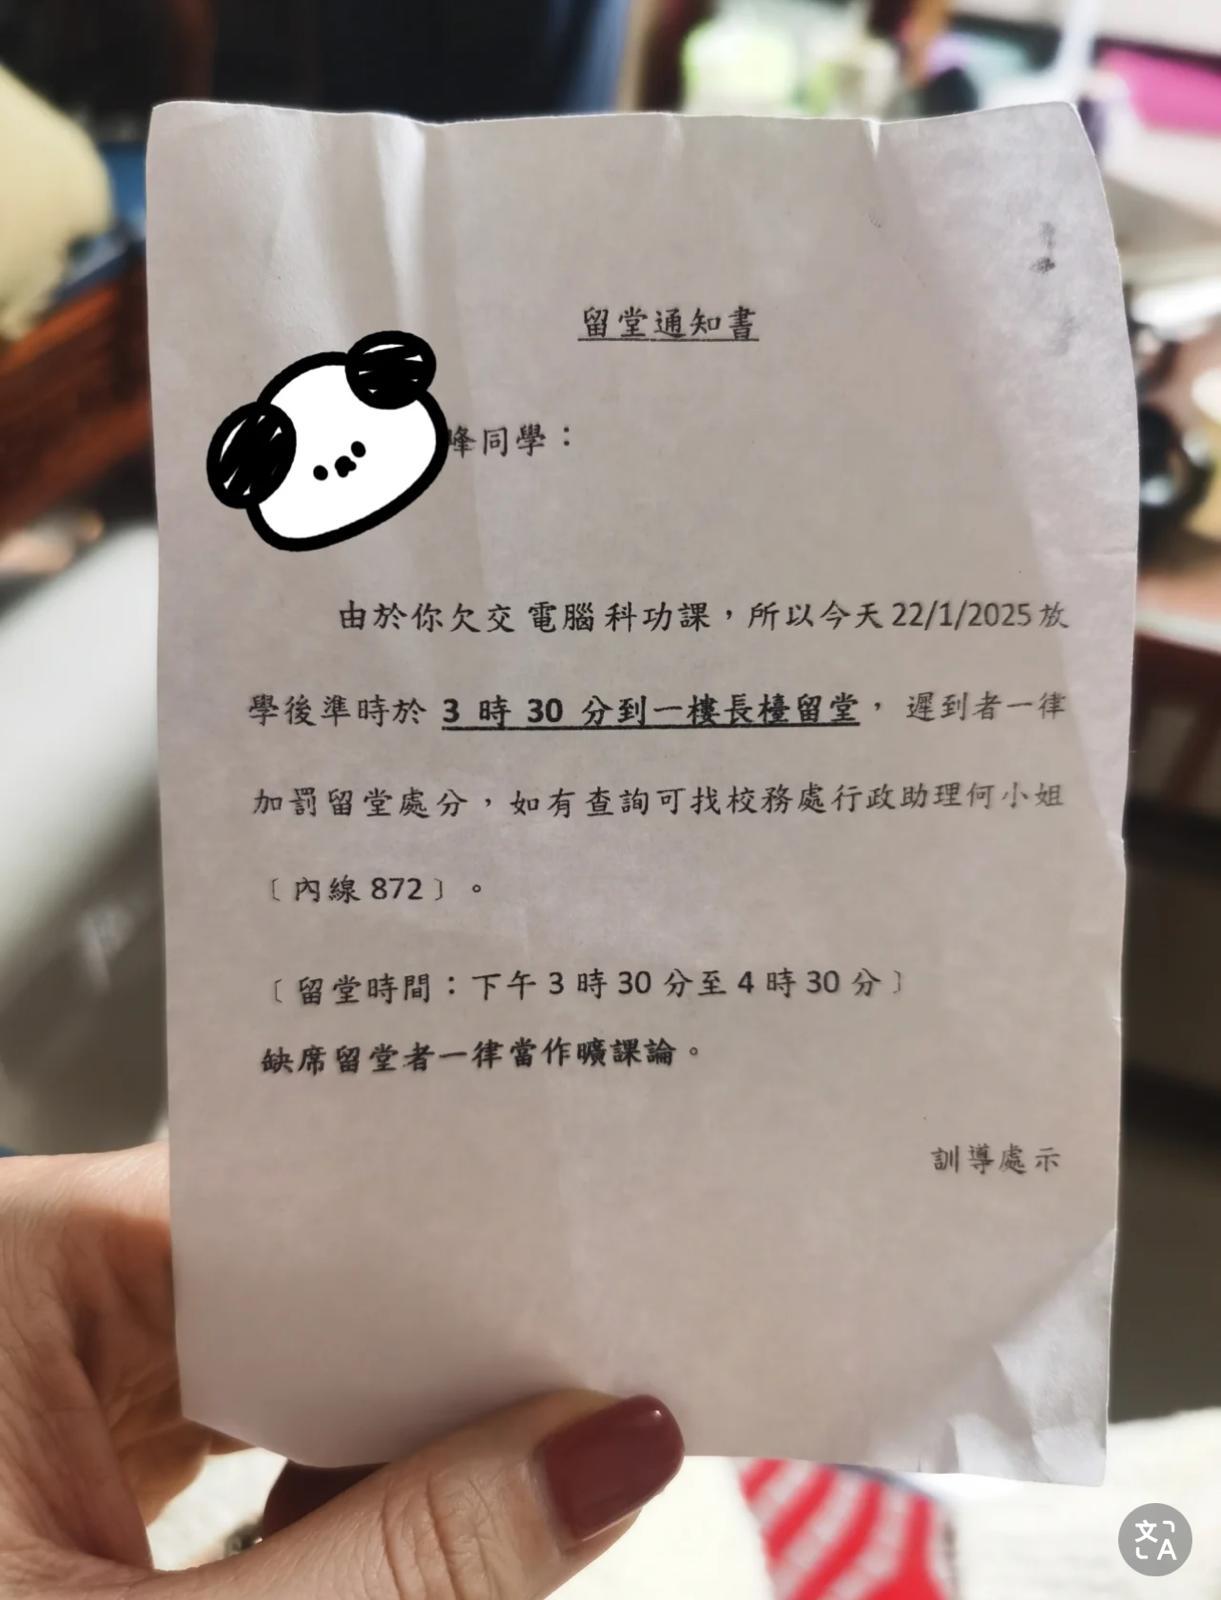 留堂通知書
峰同學：
由於你欠交 電腦 科功課，所以今天 22/1/2025 放
學後準時於 3 時 30 分到一樓長檯留堂， 遲到者一律
加罰留堂處分，如有查詢可找校務處行政助理何小姐
〔內線 872〕。
〔留堂時間：下午 3 時 30 分至 4 時 30 分〕
缺席留堂者一律當作曠課論。
訓導處示
文 A